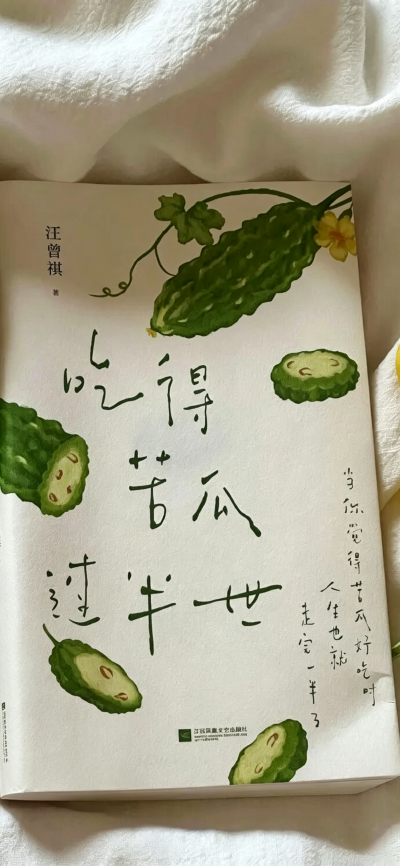 汪曾祺 著
吃得
苦瓜
过半世
当你觉得苦瓜好吃时
人生也就
走完一半了
江苏凤凰文艺出版社